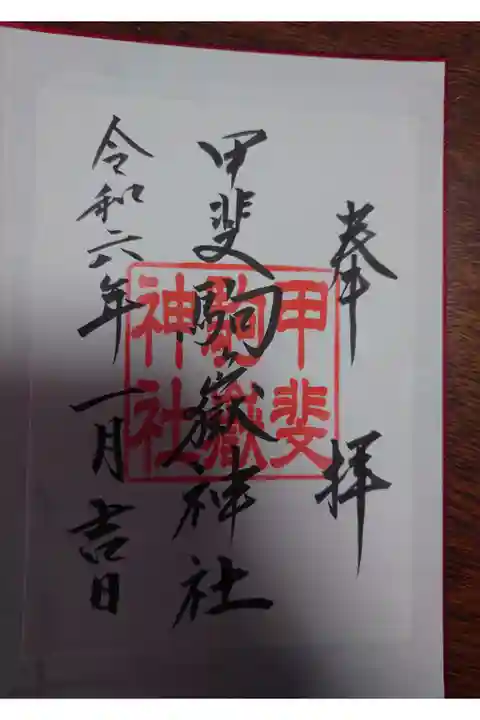 奉拝
甲斐駒ヶ嶽神社
甲斐
駒嶽
神社
令和六年一月吉日